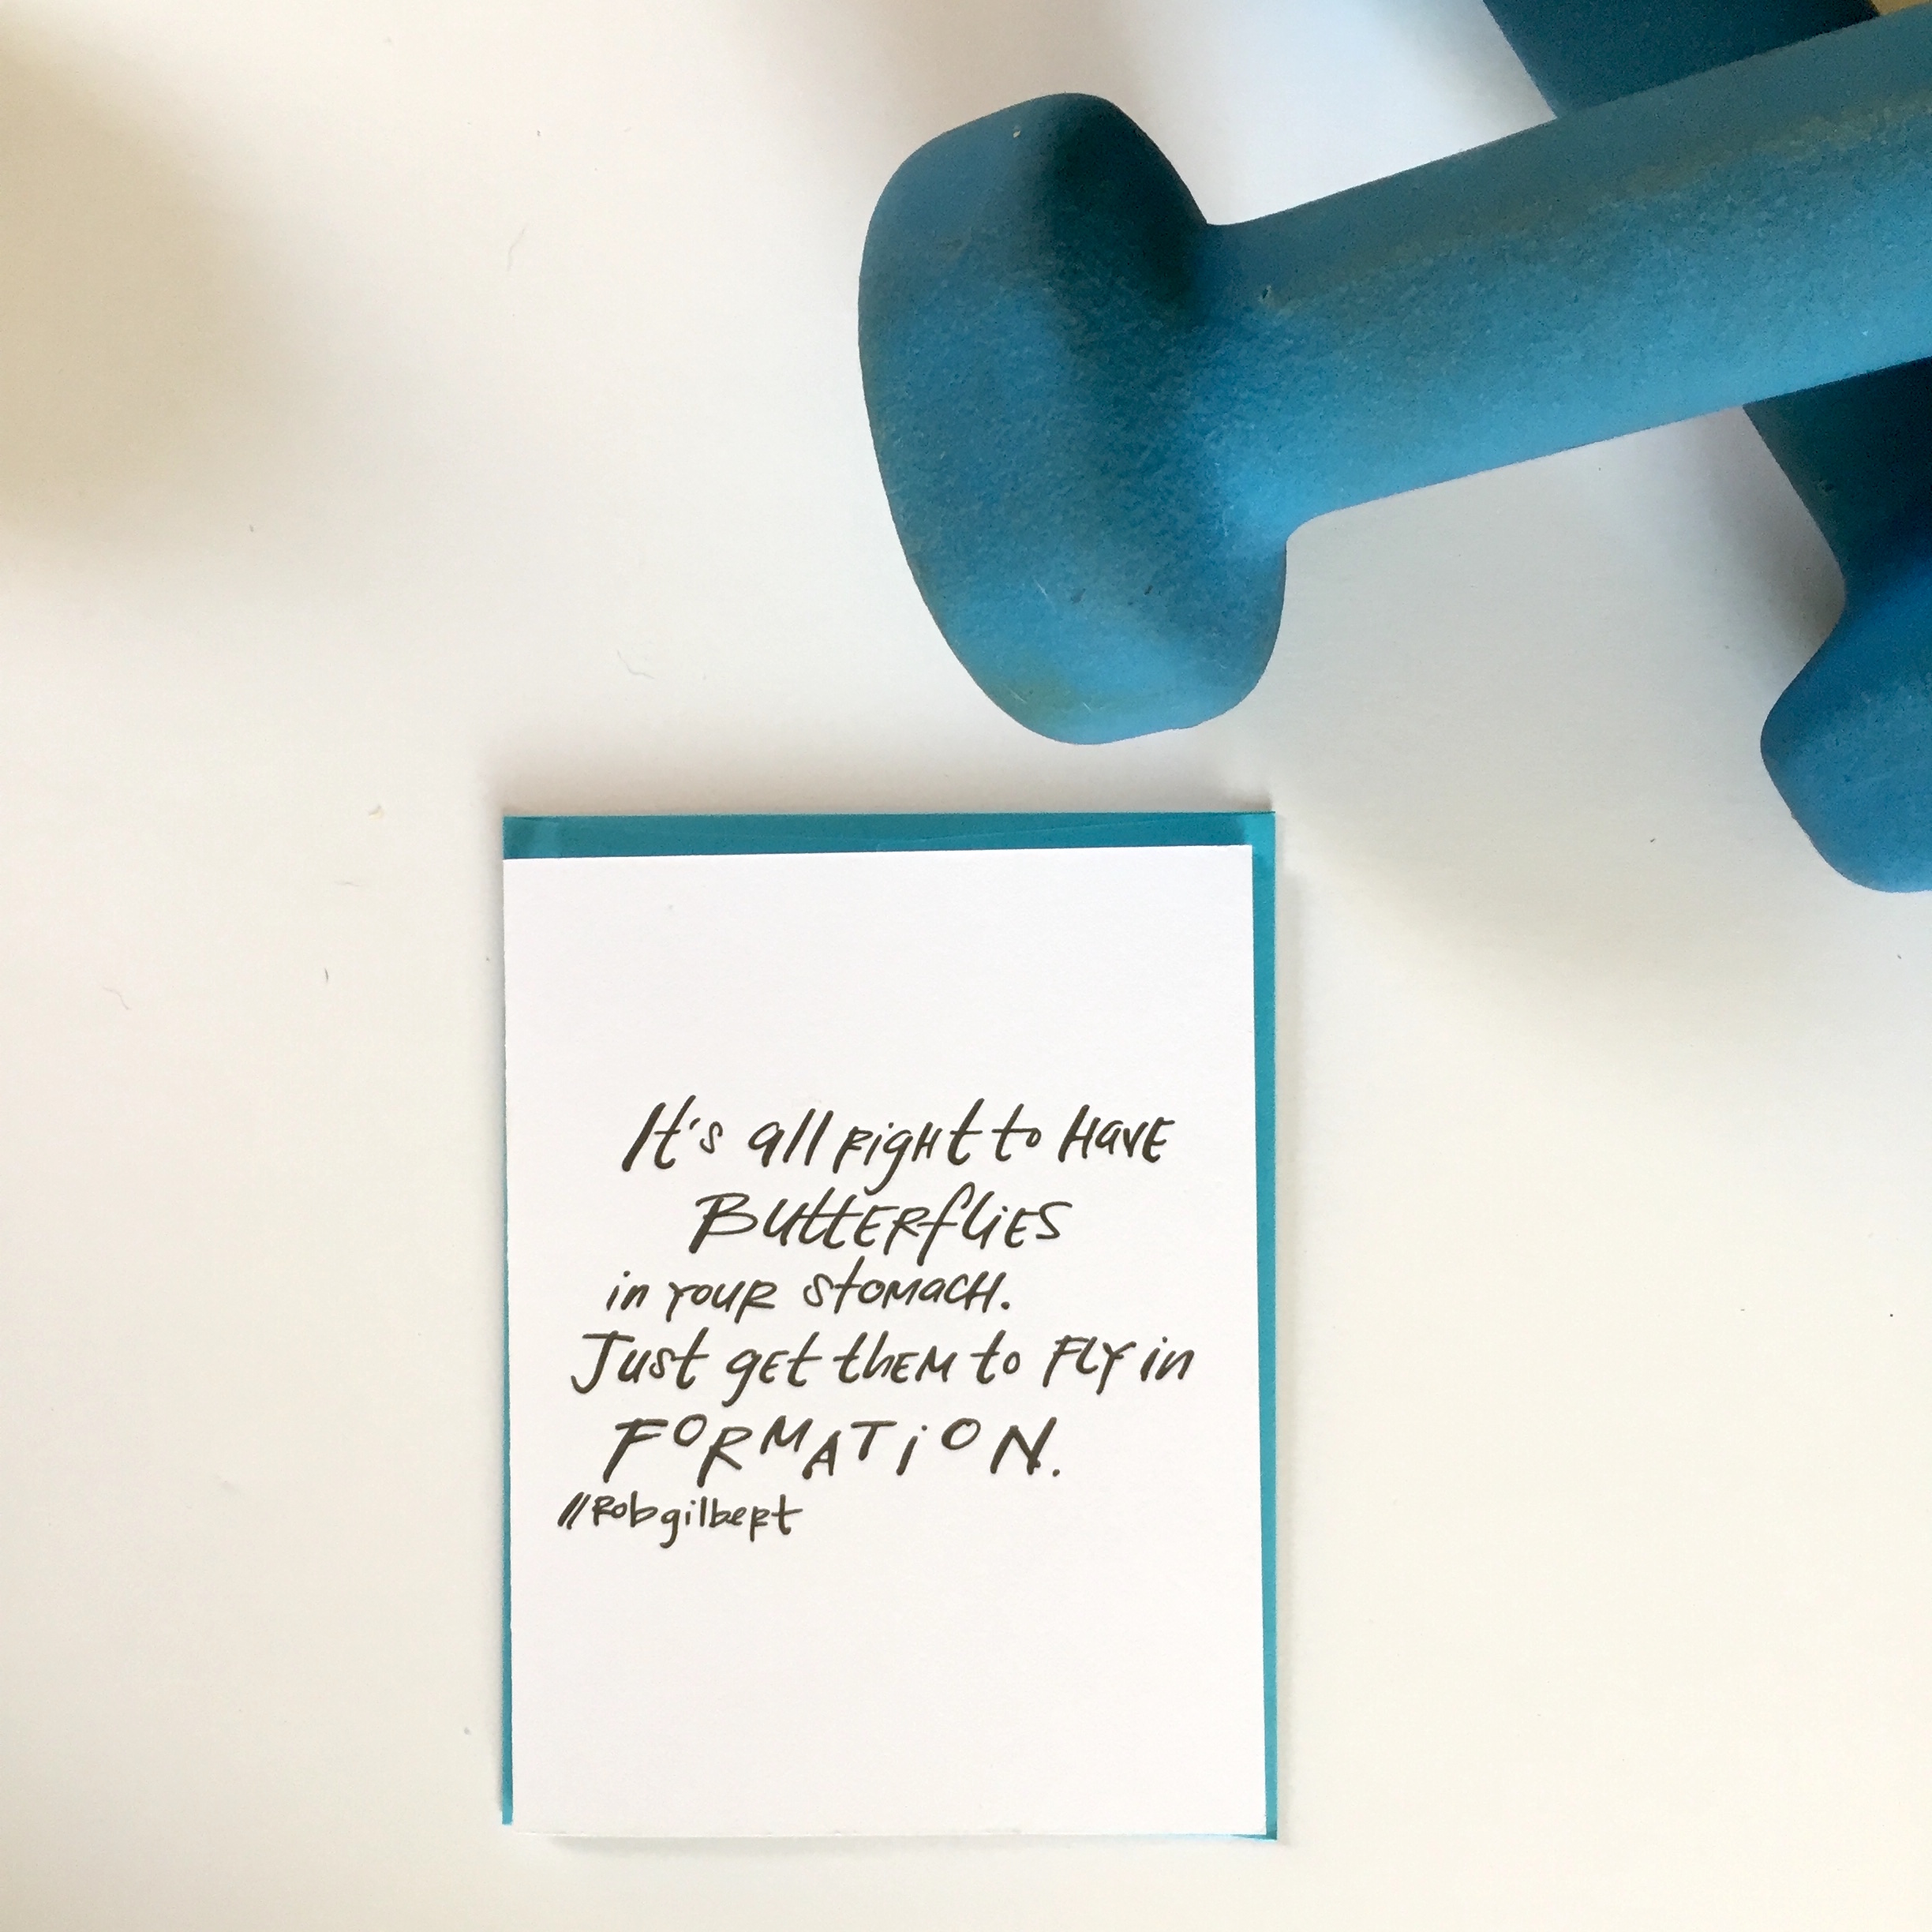 It's all right to have
Butterflies
in your stomach.
Just get them to fly in
FORMATION.
//Rob gilbert